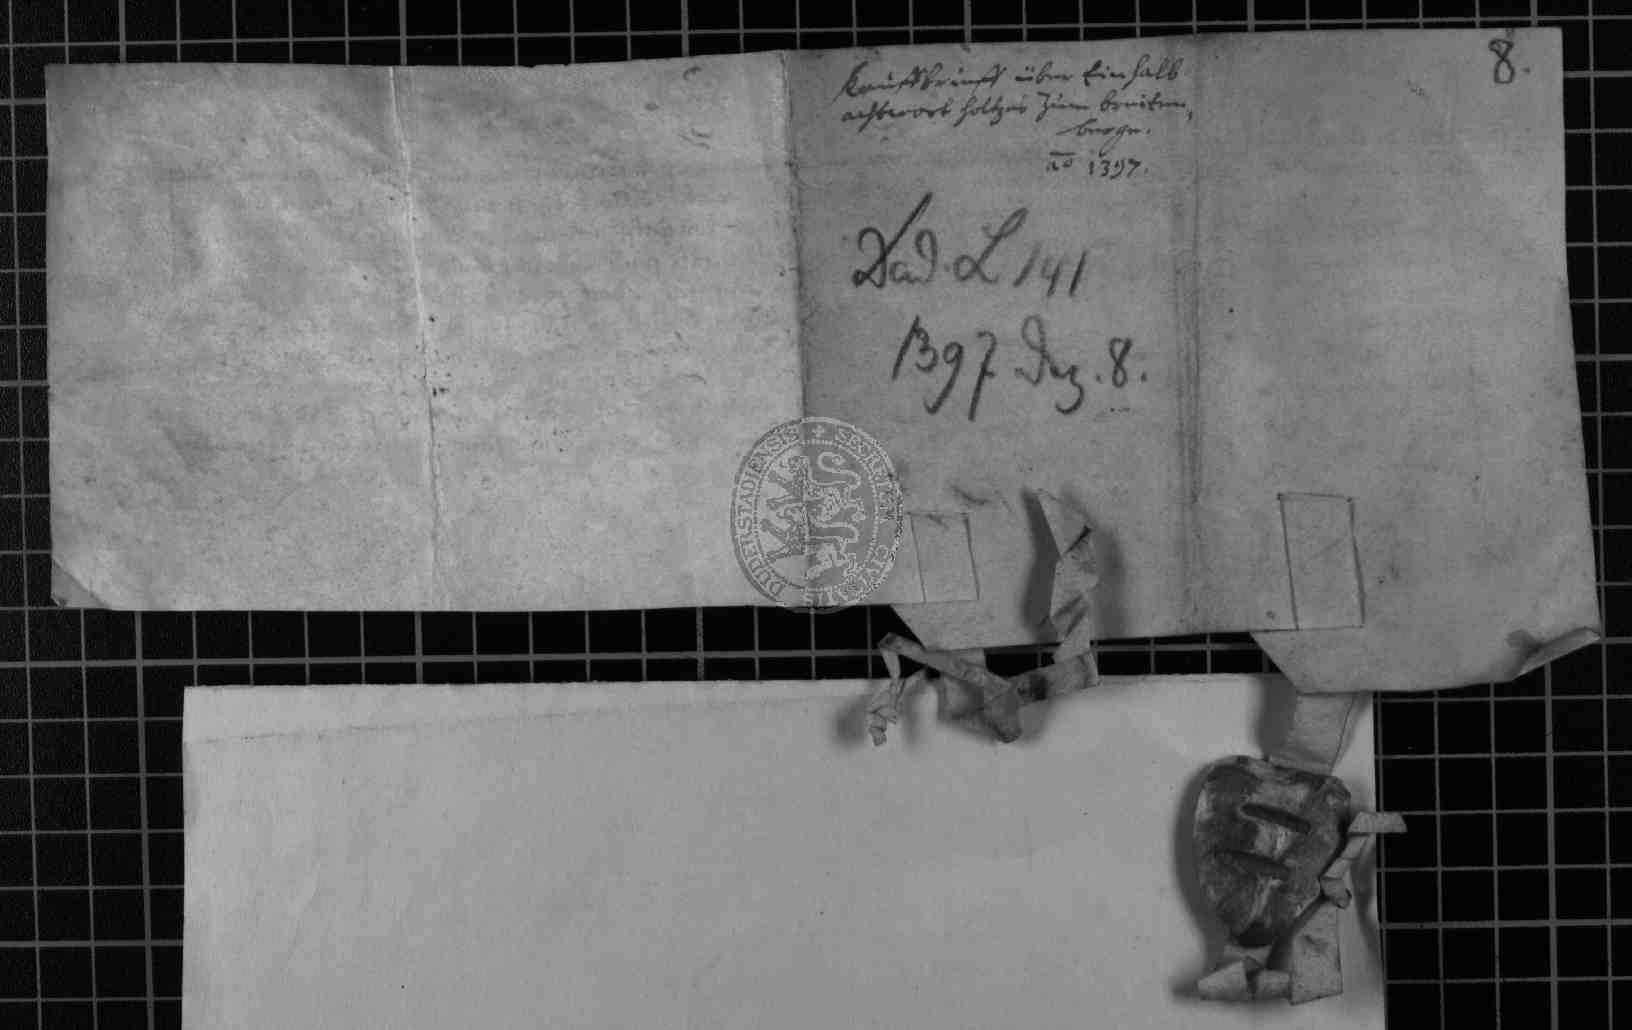 8.
Kauffbrieff über Ein halb
achtwort holtzes zum breiten,
berge.
ao 1397.
Dud. L 141
1397 Dez. 8.
SECRETUM CIVITATIS DUDERSTADIENSIS